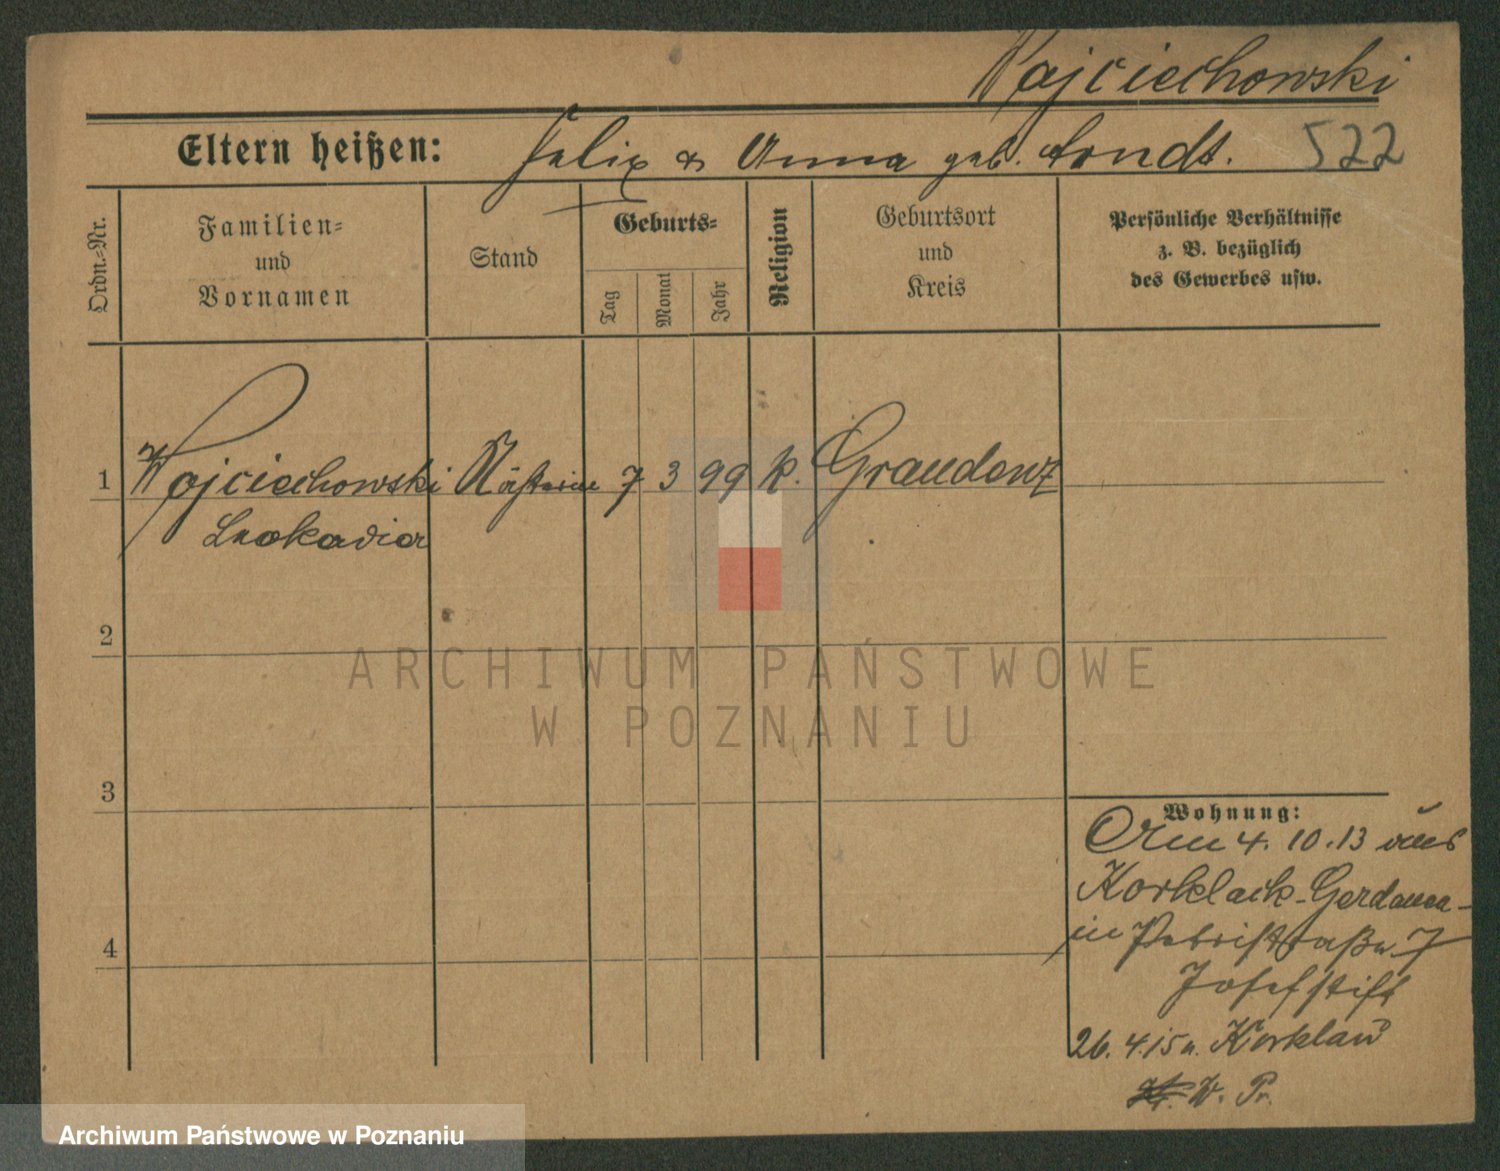 Wojciechowski
Eltern heißen: Felix & Anna geb. Arndt. 522
Ordn.-Nr.
Familien-
und
Vornamen
Stand
Geburts-
Tag
Monat
Jahr
Religion
Geburtsort
und
Kreis
Persönliche Verhältnisse
z. B. bezüglich
des Gewerbes usw.
1 Wojciechowski Näherin 7 3 99 k. Graudenz
Leokadia
2
ARCHIWUM PAŃSTWOWE
W POZNANIU
3
Wohnung:
Am 4. 10. 13 aus
Korklack-Gerdauen-
in Petristraße 7
Josefstift
4
26. 4. 15 n. Korklau
W. Pr.
Archiwum Państwowe w Poznaniu